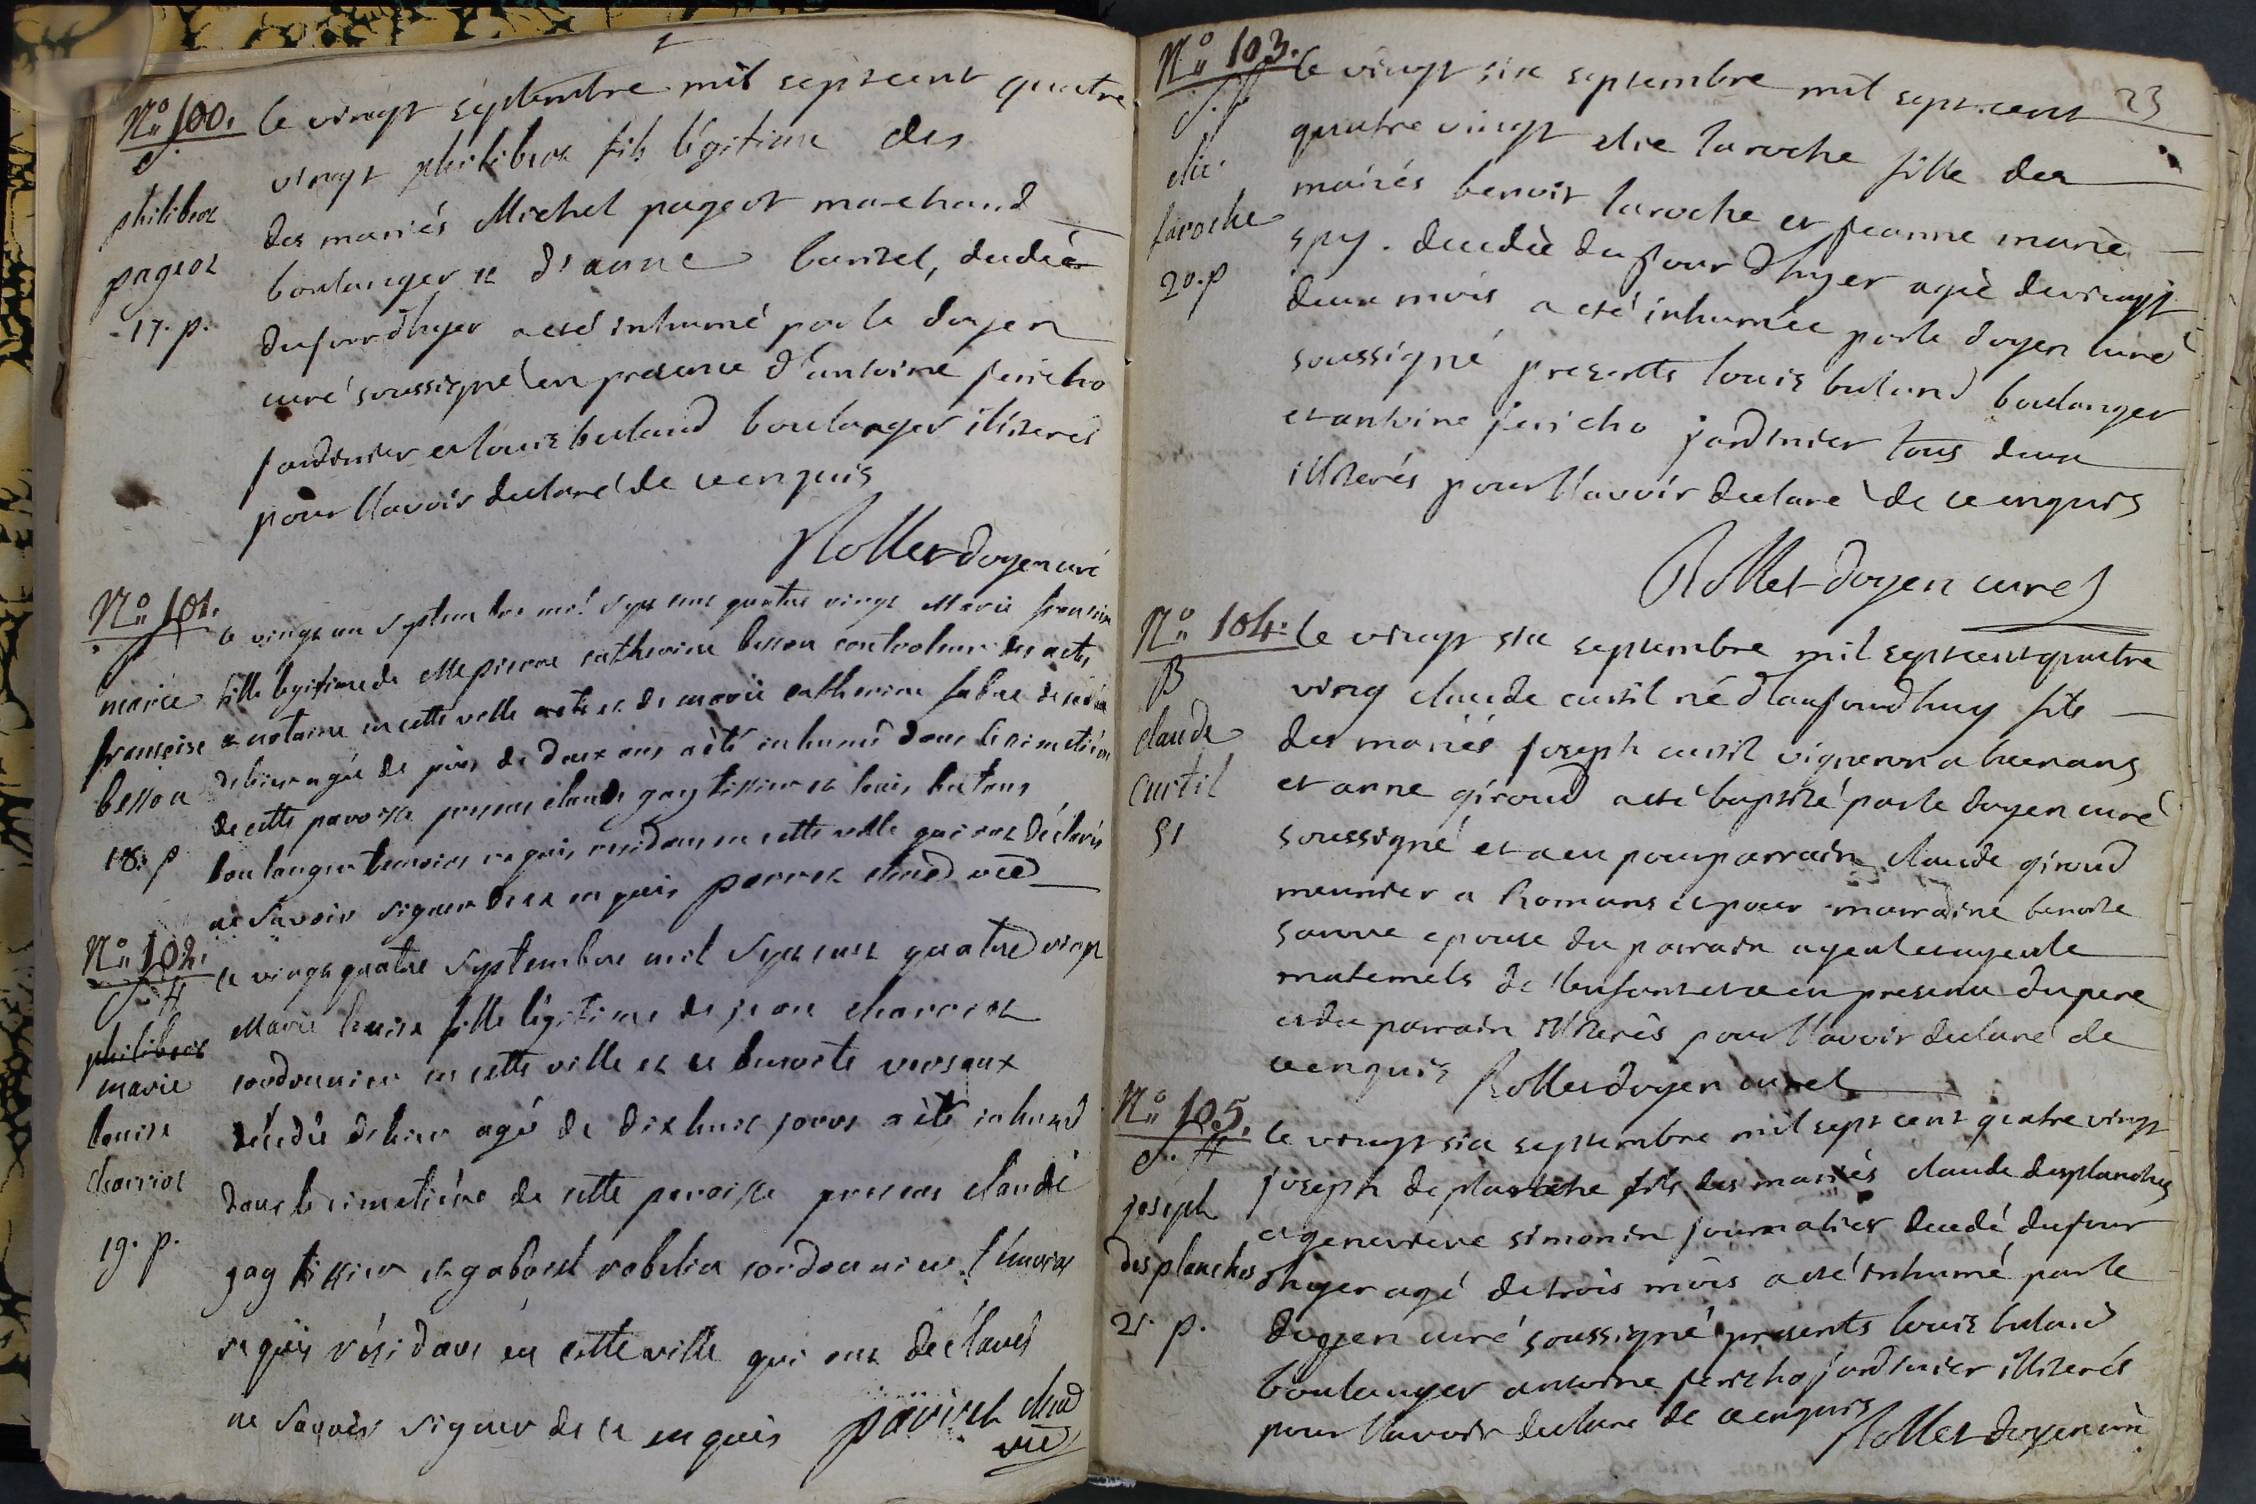 N.o 100.
S.
philibert
pageot
17. p.
le vingt septembre mil septcent quatre
vingt philibert fils légitime des
des mariés Michel pageot marchand
boulanger et d'anne buniset, decedé
du jour d'hyer a eté inhumé par le doyen
curé soussigné en presence d'antoine jericho
jardinier et louis buland boulanger illiterés
pour l'lavoir declaré de ce enquis
Rollet doyen curé
N.o 101.
S.
marie
françoise
besson
18. p
le vingt un septembre mil sept cent quatre vingt Marie francoise
fille legitime de Me pierre catherine besson controleur des actes
et notaire en cette ville et de marie catherine fabre decedée
d'hier agée de près de deux ans a été inhumé dans le cimetiére
de cette paroisse presens claude gay tissier et louis butans
boulanger temoins requis residans en cette ville qui ont déclarés
ne savoir signer de ce enquis perret chad vic
N.o 102.
S. H
philibert
marie
louise
charriot
19. p.
le vingt quatre septembre mil sept cent quatre vingt
Marie louise fille légitime de jean charriot
cordonnier en cette ville et de benoite verseaux
décédé d'hier agé de dix huit jours a été inhumé
dans le cimetiére de cette paroisse presens claude
gay tissier et gabriel robelin cordonnier témoins
requis résidans en cette ville qui ont déclarés
ne savoir signer de ce enquis perret chad
vic
23
N.o 103.
S. ff
elie
laroche
20. p
le vingt six septembre mil sept cent
quatre vingt elie laroche fille des
mariés benoit laroche et jeanne marie
spy. decedée du jour d'hyer agée de vingt
deux mois a eté inhumée par le doyen curé
soussigné presents louis buland boulanger
et antoine jericho jardinier tous deux
illiterés pour l'lavoir declaré de ce enquis
Rollet doyen curé
N.o 104.
B
claude
curtil
51
le vingt six septembre mil septcent quatre
vingt claude curtil né d'aujourdhuy fils
des mariés joseph curtil vigneron a
et anne giroud a eté baptisé par le doyen curé
soussigné et a eu pour parrain claude giroud
meunier a Romans et pour marraine benoite
sanve epouse du parrain ayeul et ayeule
maternels de l'enfant et ce en presence du pere
et du parrain illiterés pour l'lavoir declaré de
ce enquis Rollet doyen curé
N.o 105.
S. ff
joseph
desplanches
21. p.
le vingt six septembre mil sept cent quatre vingt
joseph deplanche fils des mariés claude desplanches
et genevieve simonin journalier decedé du jour
d'hyer agé de trois mois a eté inhumé par le
doyen curé soussigné presents louis buland
boulanger antoine jericho jardinier illiterés
pour l'lavoir declaré de ce enquis
Rollet doyen curé